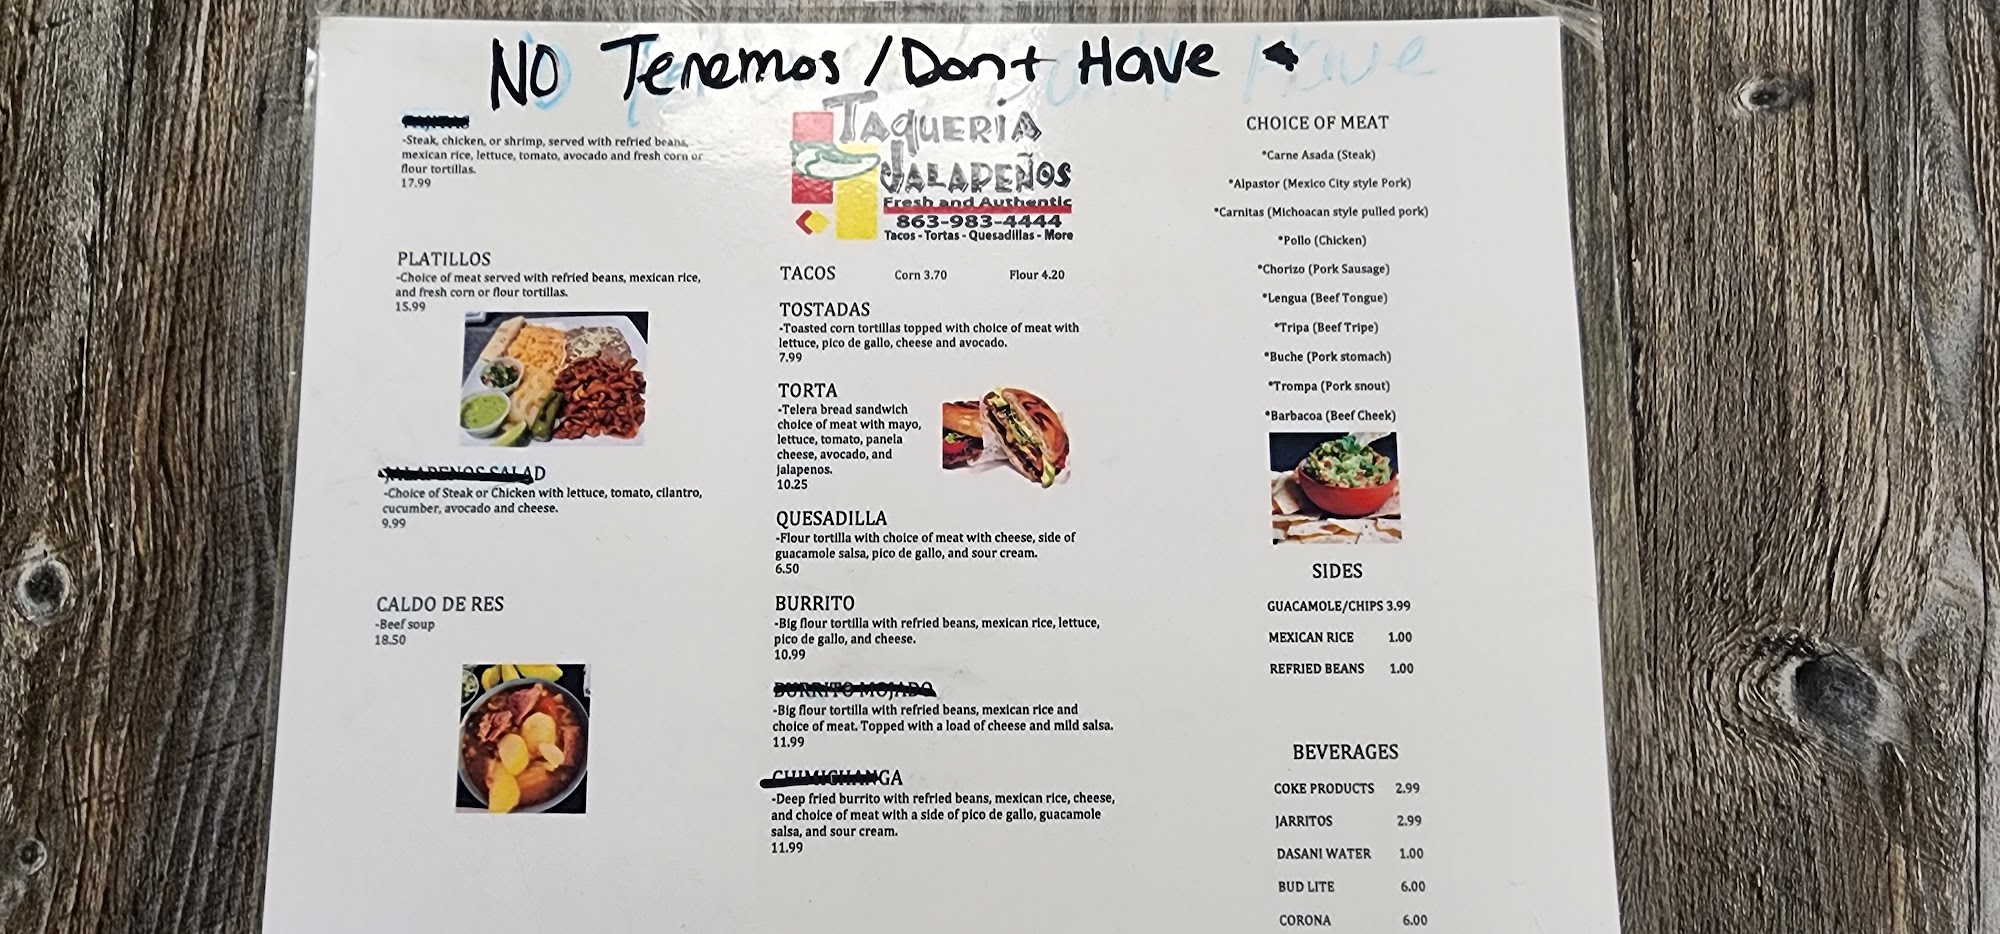 NO Tenemos / Dont Have
-Steak, chicken, or shrimp, served with refried beans,
mexican rice, lettuce, tomato, avocado and fresh corn or
flour tortillas.
17.99
PLATILLOS
-Choice of meat served with refried beans, mexican rice,
and fresh corn or flour tortillas.
15.99
JALAPENOS SALAD
-Choice of Steak or Chicken with lettuce, tomato, cilantro,
cucumber, avocado and cheese.
9.99
CALDO DE RES
-Beef soup
18.50
TAQUERIA
JALAPEÑOS
Fresh and Authentic
863-983-4444
Tacos - Tortas - Quesadillas - More
TACOS Corn 3.70 Flour 4.20
TOSTADAS
-Toasted corn tortillas topped with choice of meat with
lettuce, pico de gallo, cheese and avocado.
7.99
TORTA
-Telera bread sandwich
choice of meat with mayo,
lettuce, tomato, panela
cheese, avocado, and
jalapenos.
10.25
QUESADILLA
-Flour tortilla with choice of meat with cheese, side of
guacamole salsa, pico de gallo, and sour cream.
6.50
BURRITO
-Big flour tortilla with refried beans, mexican rice, lettuce,
pico de gallo, and cheese.
10.99
BURRITO MOJADO
-Big flour tortilla with refried beans, mexican rice and
choice of meat. Topped with a load of cheese and mild salsa.
11.99
CHIMICHANGA
-Deep fried burrito with refried beans, mexican rice, cheese,
and choice of meat with a side of pico de gallo, guacamole
salsa, and sour cream.
11.99
CHOICE OF MEAT
*Carne Asada (Steak)
*Alpastor (Mexico City style Pork)
*Carnitas (Michoacan style pulled pork)
*Pollo (Chicken)
*Chorizo (Pork Sausage)
*Lengua (Beef Tongue)
*Tripa (Beef Tripe)
*Buche (Pork stomach)
*Trompa (Pork snout)
*Barbacoa (Beef Cheek)
SIDES
GUACAMOLE/CHIPS 3.99
MEXICAN RICE 1.00
REFRIED BEANS 1.00
BEVERAGES
COKE PRODUCTS 2.99
JARRITOS 2.99
DASANI WATER 1.00
BUD LITE 6.00
CORONA 6.00